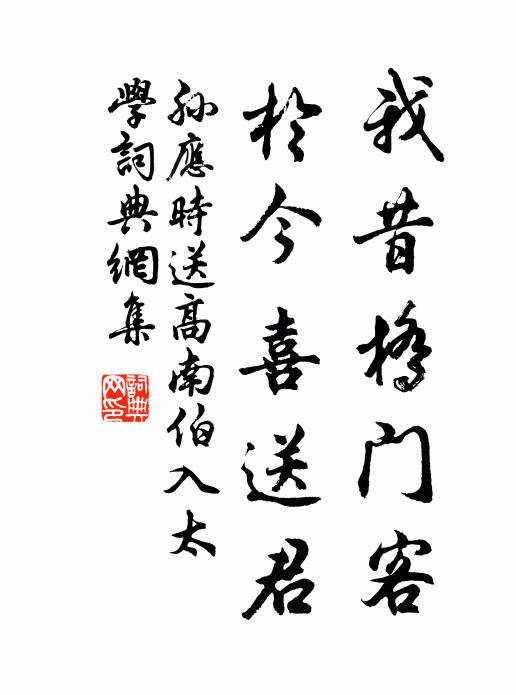 我昔橋门客
於今喜送君
孙應時送高南伯入太
學詞典網集
詞典
网印